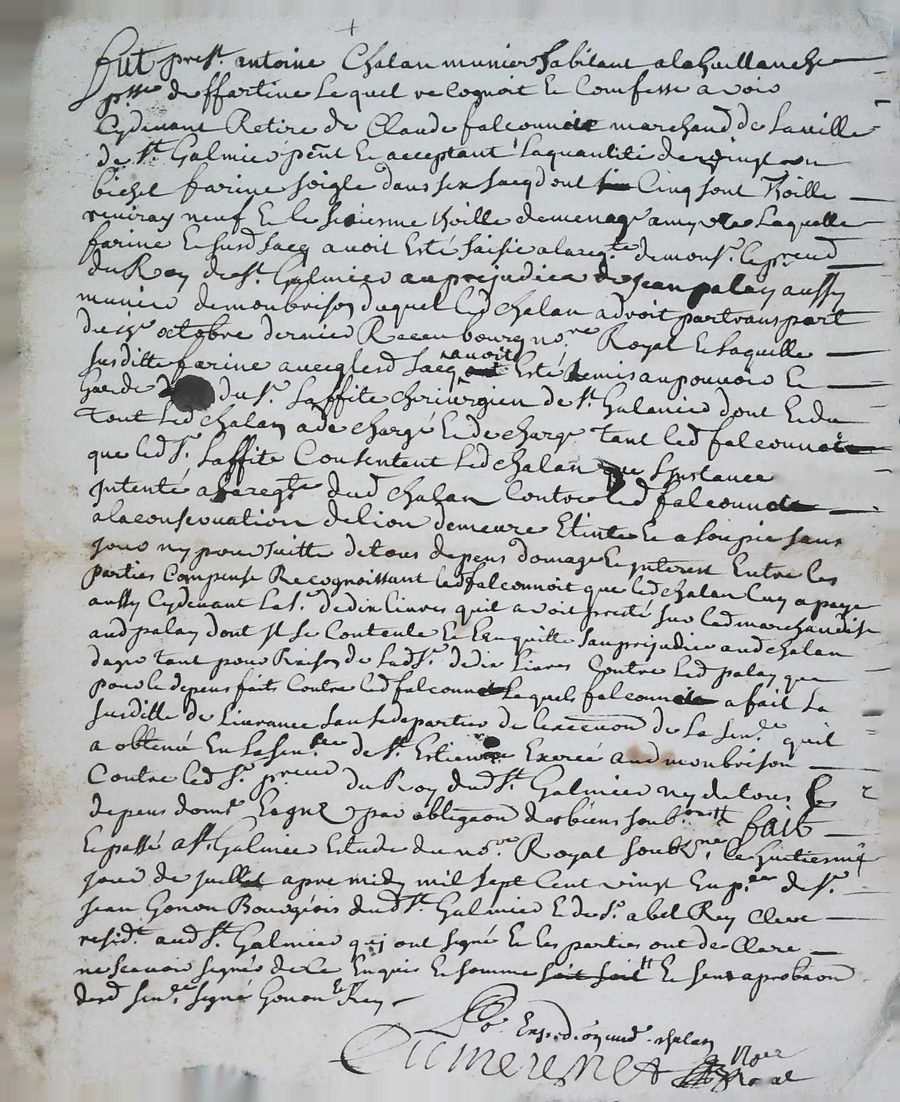 fut prest. antoine Chalan munier habitant a la Guillanche
psse de ffartine Lequel recognoit Et Comfesse avoir
Cydevant Retiré de Claude falconnet marchand de la ville
de St. Galmier pnt Et acceptant la quantité de vingt un
bichet farine soigle dans six sacqs dont Cinq sont thoille
neuf Et le sixiesme thoille de menage Laquelle
farine Et susd sacq avoit Esté saisie a la reqte de monsr. le procud
du Roy de St. Galmier au prejudice de Jean palay aussy
munier de monbrison duquel led chalan a droit par transport
du ixe octobre dernier Receu bourg nore. Royal Et laquelle
susditte farine avec lesd sacq avoit Esté Remis au pouvoir Et
garde du sr. Laffite chirurgien de St. Galmier dont Et du
tout Led chalan a dechargé Et decharge tant led falconnet
que led sr. Laffite Consentent Led chalan que Linstance
Intenté a la reqte dud chalan Contre led falconnet
a la conservation de lion demeure Etinte Et assoupie sans
jour ny poursuitte de tous depens domage Et interest Entre les
parties Compensé Recognoissant led falconnoit que led chalan luy a payé
aussy Cydevant La s. de dix livres quil avoit presté sur led marchandise
aud palay dont Il se Contente Et Len quitte san prejudice aud chalan
dagir tant pour Raison de Lad s. de dix livres Contre led palay que
pour le depens faits Contre led falconnet Lequel falconnet a fait La
susditte delivrance sans se departir de lexecution de la sence quil
a obtenue En la senece de St. Estienne Exercée aud monbrison
Contre led sr. procud du Roy dud St. Galmier ny de tous les
depens domes par obligaon des biens soub fait
Et passé a St. Galmier Estude du nore Royal soubzne. le huitiesme
jour de juillet apre midy mil sept Cent vingt En pnce de sr.
Jean Gonon Bourgeois dud St. Galmier Et de sr. abel Rey Clerc
residt. aud St. Galmier qui ont signé Et les parties ont declare
ne scavoir signer de ce Enquis Et somme Et sens aprobaon
desd signé Gonon Et Rey
Expedié aud. chalan
nore
Royal